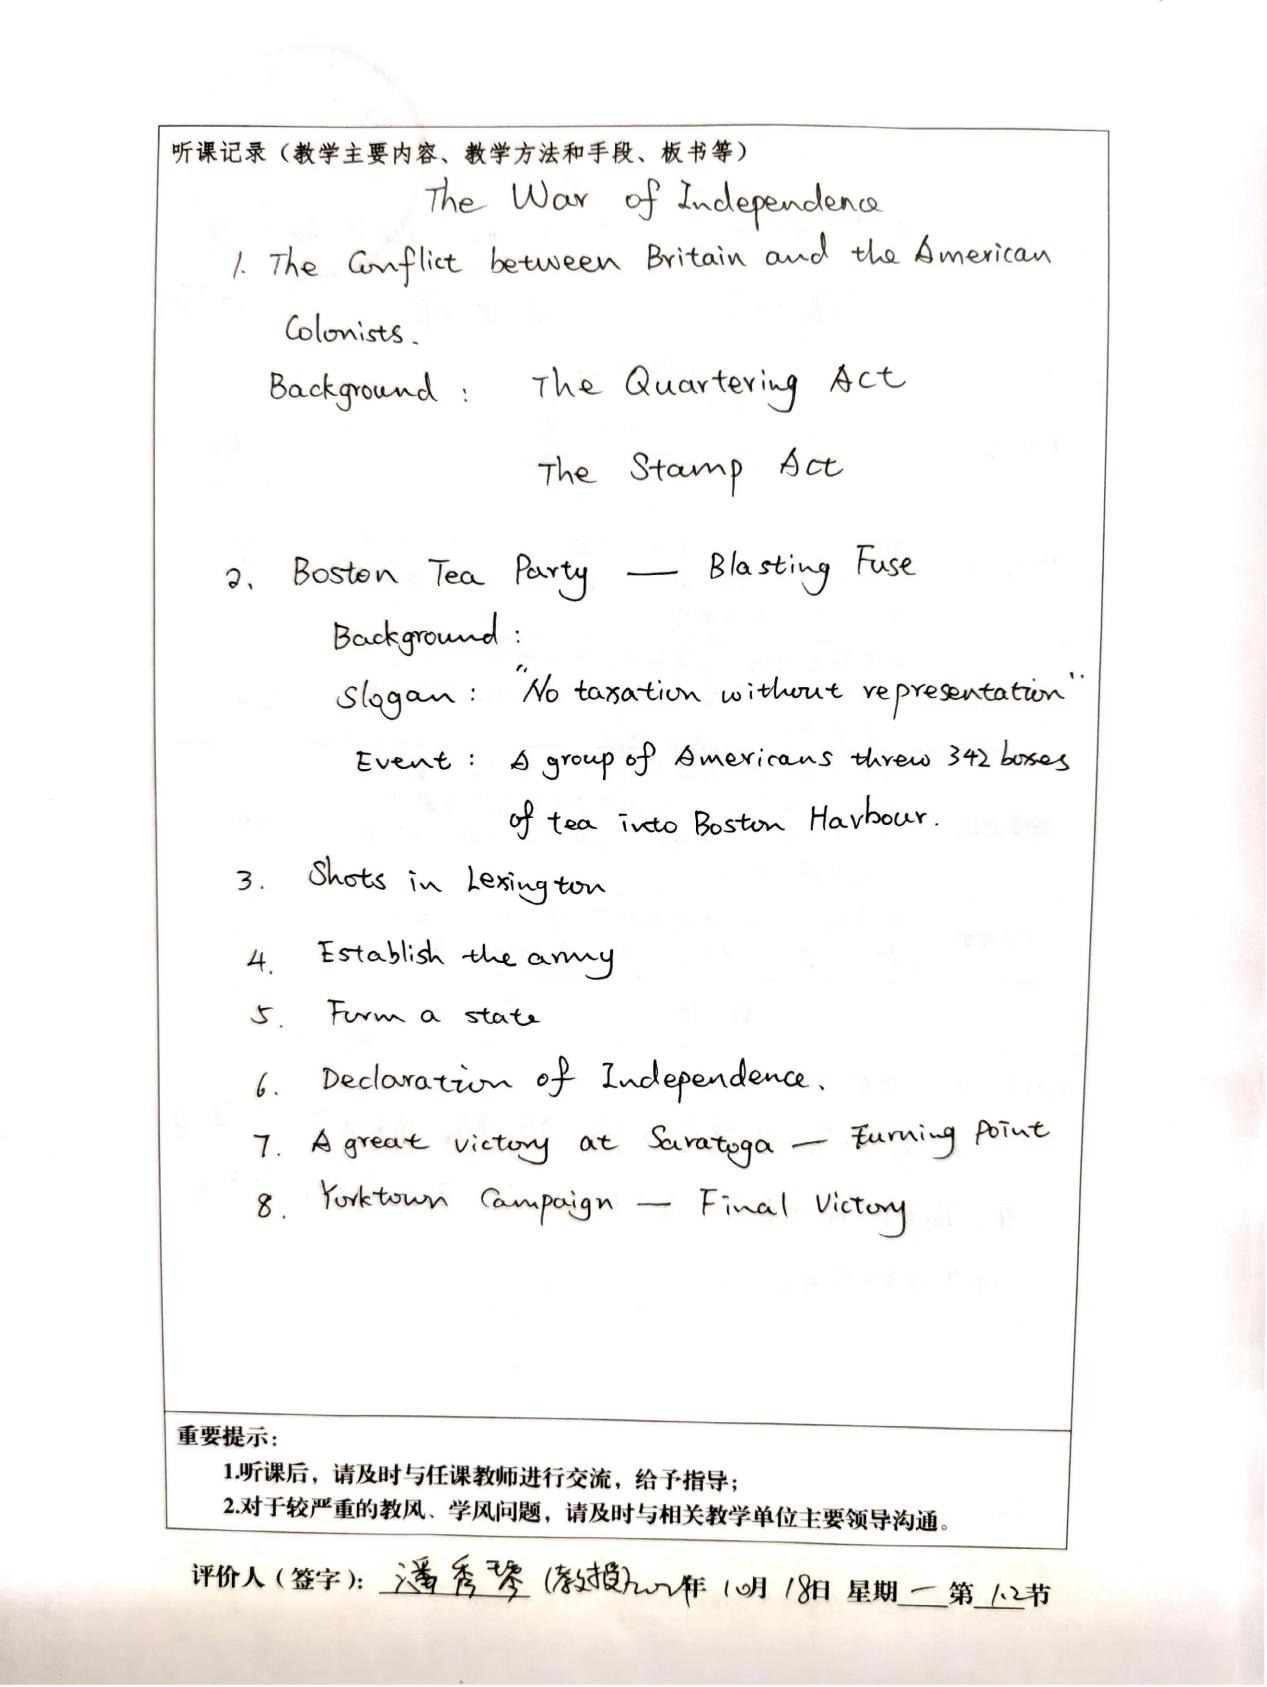 听课记录（教学主要内容、教学方法和手段、板书等）
The War of Independence
1. The Conflict between Britain and the American
Colonists.
Background : The Quartering Act
The Stamp Act
2. Boston Tea Party — Blasting Fuse
Background :
Slogan : "No taxation without representation"
Event : A group of Americans threw 342 boxes
of tea into Boston Harbour.
3. Shots in Lexington
4. Establish the army
5. Form a state
6. Declaration of Independence.
7. A great victory at Saratoga — Turning Point
8. Yorktown Campaign — Final Victory
重要提示：
1.听课后，请及时与任课教师进行交流，给予指导；
2.对于较严重的教风、学风问题，请及时与相关教学单位主要领导沟通。
评价人（签字）：潘秀琴（教授）年 10月 18日 星期一 第 1.2节